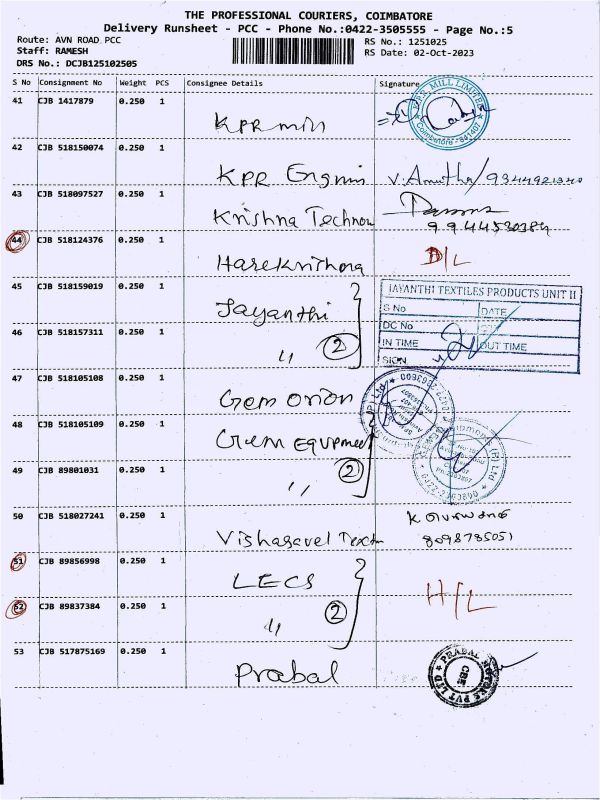 THE PROFESSIONAL COURIERS, COIMBATORE
Delivery Runsheet - PCC - Phone No.:0422-3505555 - Page No.:5
Route: AVN ROAD PCC
RS No.: 1251025
Staff: RAMESH
RS Date: 02-Oct-2023
DRS No.: DCJB125102505
S No Consignment No Weight PCS Consignee Details Signature
41 CJB 1417879 0.250 1 KPR mill
K.P.R. MILL LIMITED
Coimbatore - 641407
42 CJB 518150074 0.250 1 KPR Engmin V. Amutha/9344921340
43 CJB 518097527 0.250 1 Krishna Technou
44 CJB 518124376 0.250 1 HareKrishna D/L
45 CJB 518159019 0.250 1 Jayanthi
46 CJB 518157311 0.250 1 " 2
JAYANTHI TEXTILES PRODUCTS UNIT II
S No DATE
DC No
IN TIME OUT TIME
SIGN
47 CJB 518105108 0.250 1 Gem orion
48 CJB 518105109 0.250 1 Gem Equpmeet
49 CJB 89801031 0.250 1 " 2
50 CJB 518027241 0.250 1 Vishagavel Textm
8098785051
51 CJB 89856998 0.250 1 LECS H/L
52 CJB 89837384 0.250 1 " 2
53 CJB 517875169 0.250 1 Prabal
PRABAL MOTORS PVT LTD
CBE